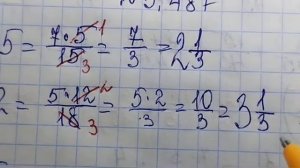 5 = 7·5 1 / 15 3 = 7/3 = 2 1/3
2 = 5·12 2 / 18 3 = 5·2/3 = 10/3 = 3 1/3